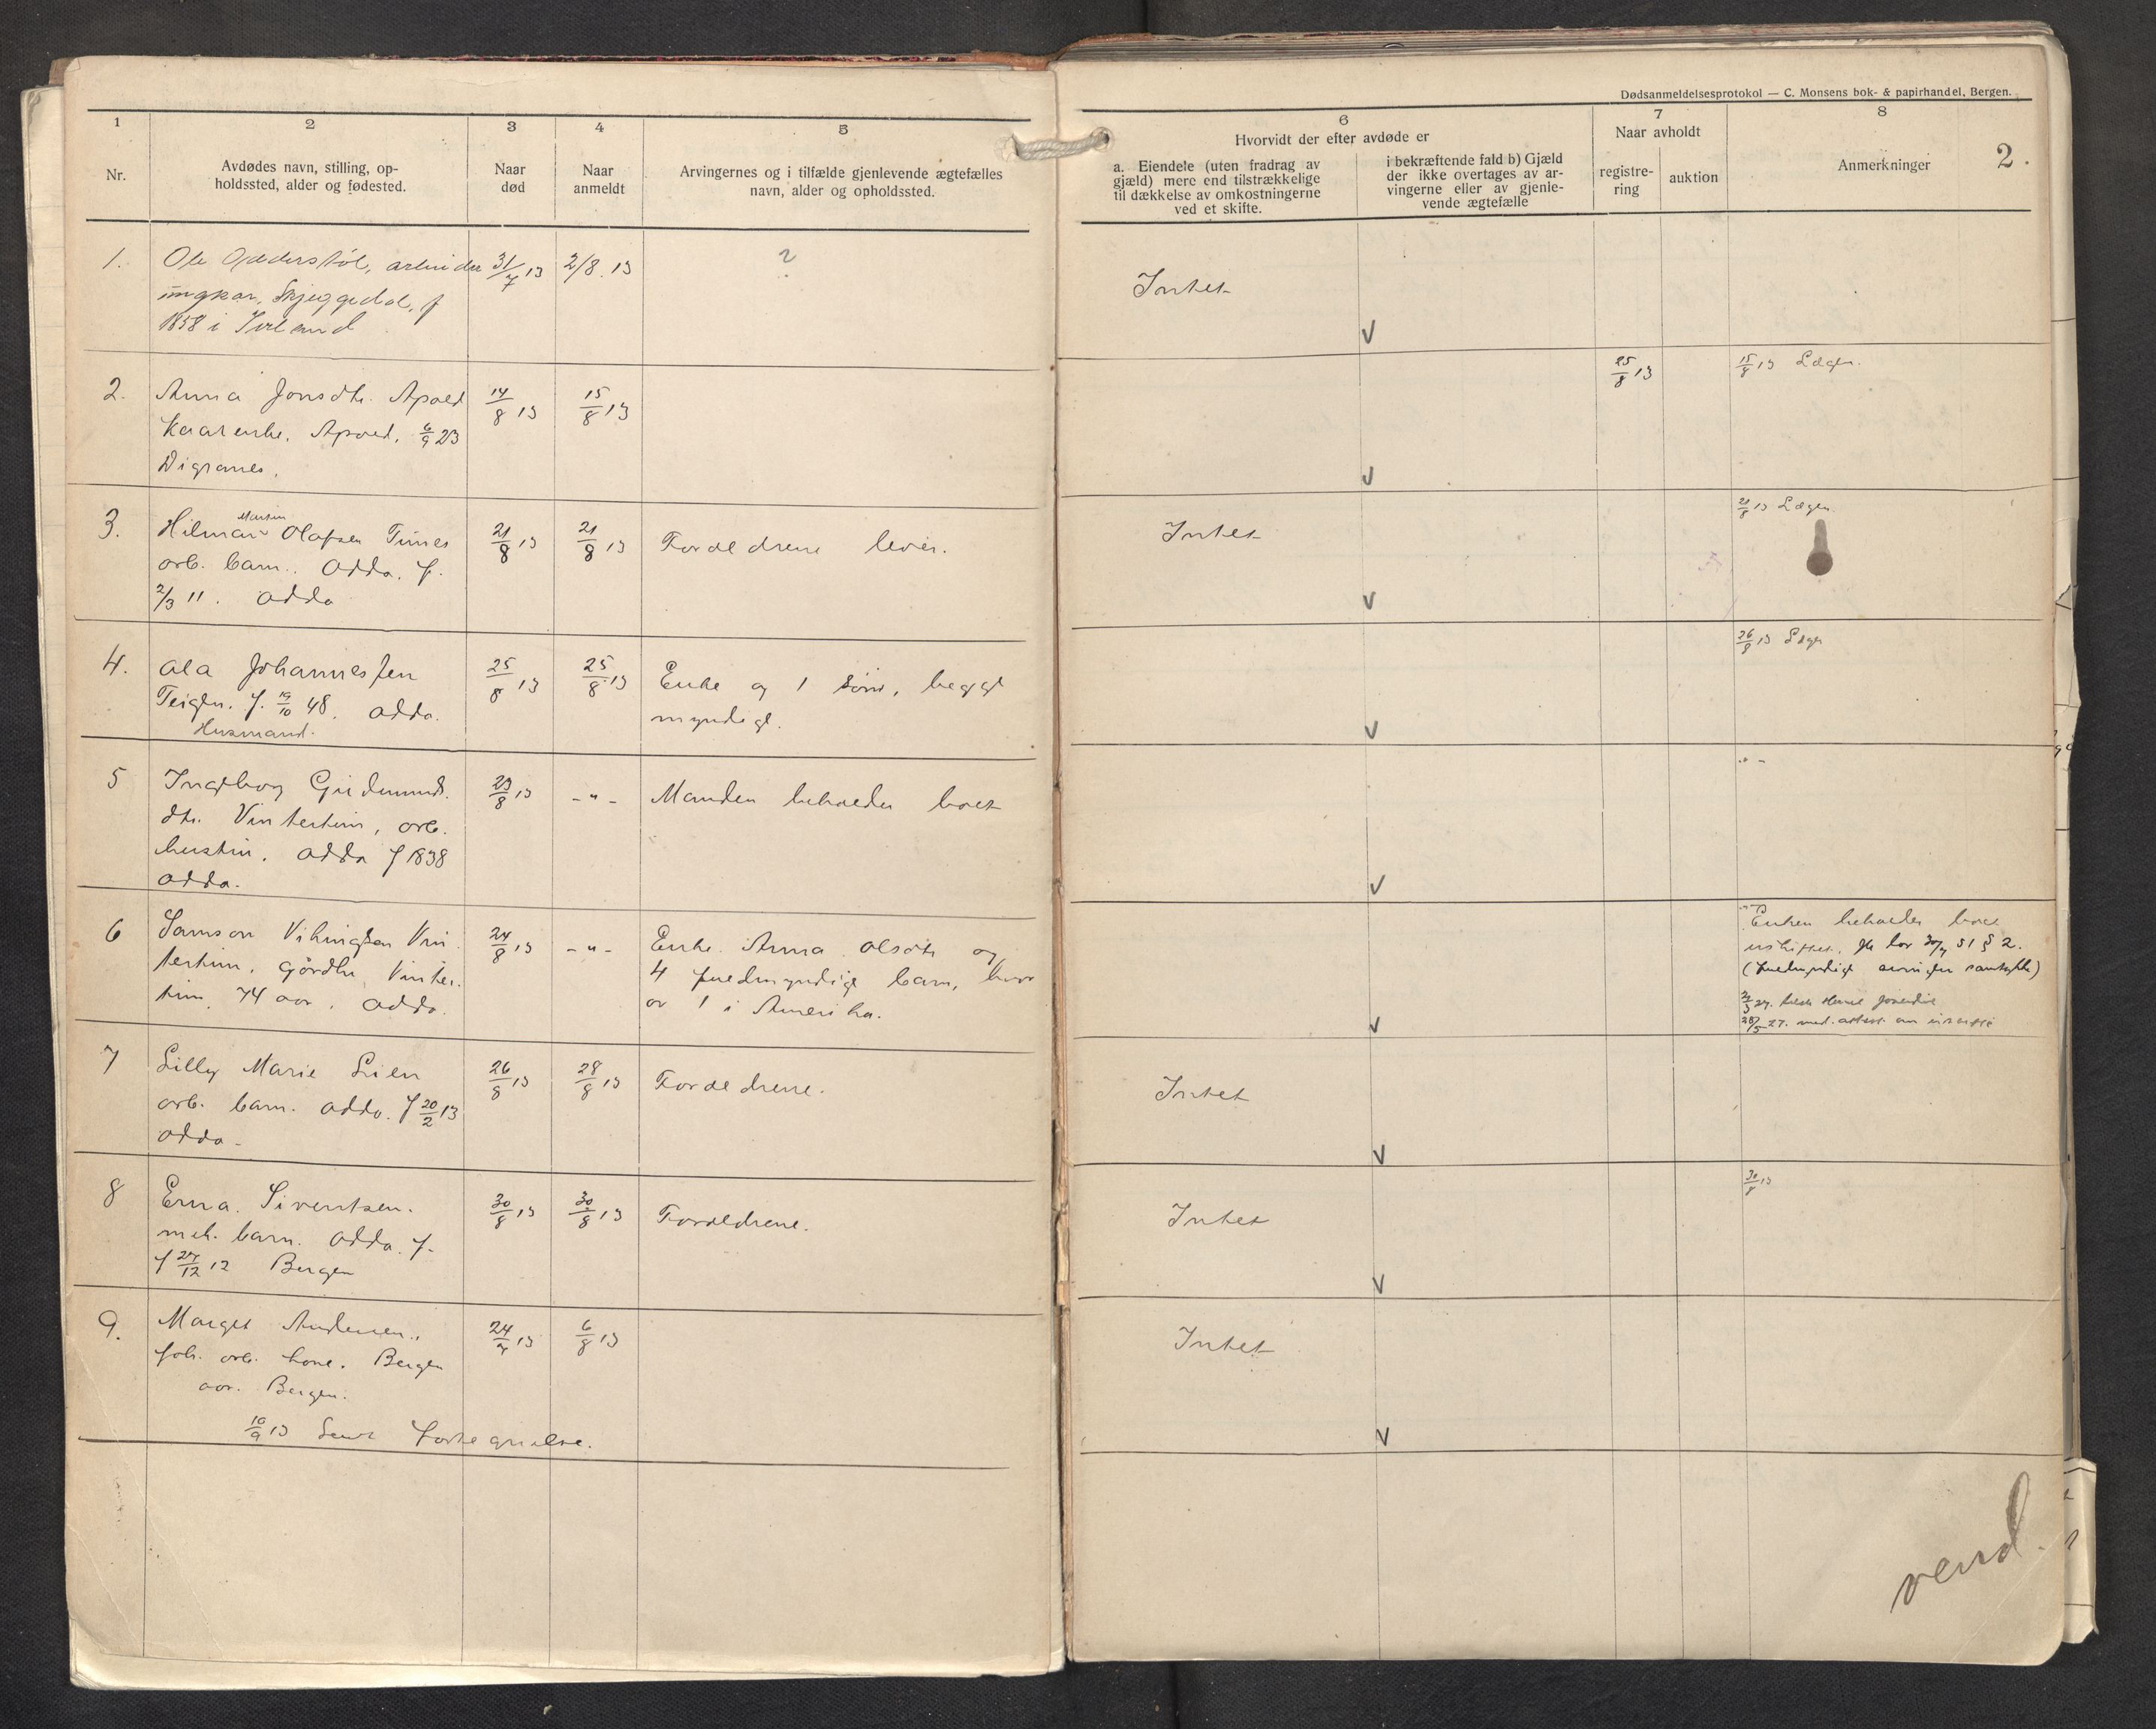 Dødsanmeldelsesprotokol — C. Monsens bok- & papirhandel, Bergen.
1
Nr.
2
Avdødes navn, stilling, op-
holdssted, alder og fødested.
3
Naar
død
4
Naar
anmeldt
5
Arvingernes og i tilfælde gjenlevende ægtefælles
navn, alder og opholdssted.
6
Hvorvidt der efter avdøde er
a. Eiendele (uten fradrag av
gjæld) mere end tilstrækkelige
til dækkelse av omkostningerne
ved et skifte.
i bekræftende fald b) Gjæld
der ikke overtages av ar-
vingerne eller av gjenle-
vende ægtefælle
7
Naar avholdt
registre-
ring
auktion
8
Anmerkninger
2.
1.
Ole arbeider
ungkar, Skjeggedal, f
1858 i
31/7 13
2/8. 13
?
Intet
V
2.
Anna Jonsdtr. Apold
Apold, 6/9 23
Digranes.
14/8 13
15/8 13
V
25/8 13
15/8 13 Lægen.
3.
Martin
Hilmar Olafsen
arb. barn. Odda. f.
2/3 11. Odda
21/8 13
21/8 13
Foreldrene lever.
Intet
V
21/8 13 Lægen.
4.
Ola Johannessen
Teigen. f. 19/10 48. Odda.
Husmand.
25/8 13
25/8 13
Enke og 1 søn, begge
myndige.
V
26/8 13 Lægen
5
Ingeborg Gudmunds.
dtr. Vintertun, arb.
hustru. Odda f 1838
Odda.
23/8 13
-"-
Manden beholder boet
V
" -
6
Samson Vikingsen Vin
tertun, Vinter-
tun 74 aar, Odda.
24/8 13
-"-
Enke Anna Olsdtr og
4 fuldmyndige barn, hvor
av 1 i Amerika.
V
Enken beholder boet
uskiftet. lov 30/7 51 § 2.
(fuldmyndige arvinger samtykke)
28/5 27. med. attest om uskifte
7
Lilly Marie Lien
arb. barn. Odda. f 20/2 13
Odda-
26/8 13
28/8 13
Foreldrene.
Intet
V
8
Erna Sivertsen.
mek. barn. Odda. f.
f 27/12 12 Bergen
30/8 13
30/8 13
Foreldrene.
Intet
V
30/8 13
9.
Marget Andersen,
arb. kone. Bergen
aar. Bergen.
10/9 13 Sendt
24/7 13
6/8 13
Intet
V
vend.